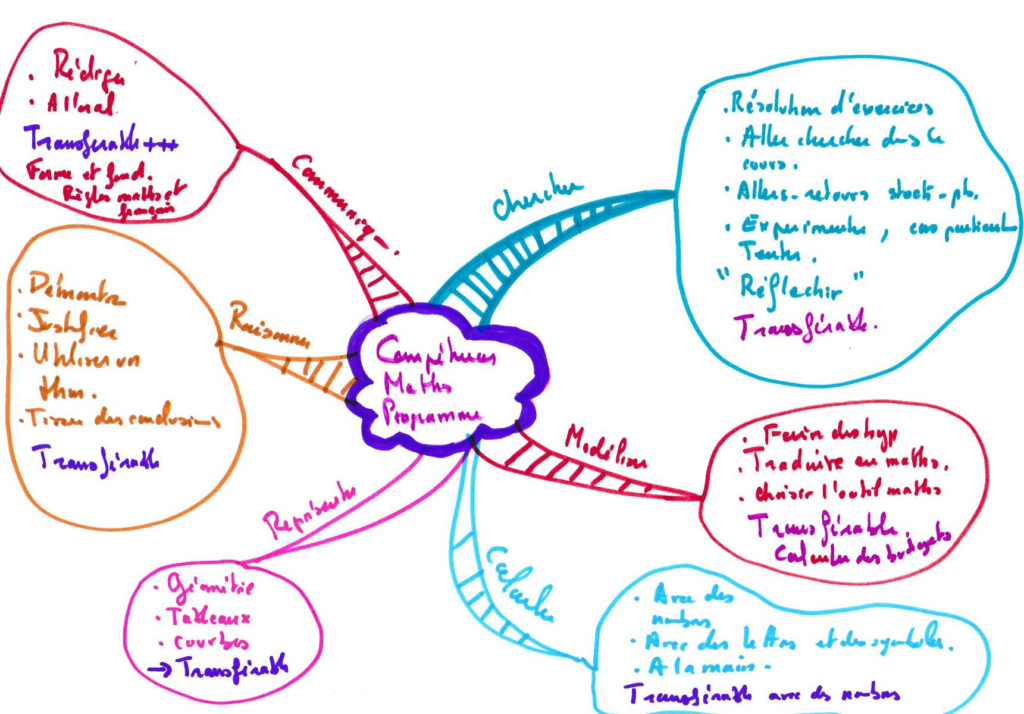 Compétences
Maths
Programme
Communiquer
. Rédiger
. A l'oral
Transférable +++
Forme et fond.
Règles maths et
français
Chercher
. Résolution d'exercices
. Aller chercher dans le
cours.
. Allers-retours stock-pb.
. Expérimenter, cas particuliers
Tenter.
"Réflechir"
Transférable.
Raisonner
. Démontrer
. Justifier
. Utiliser un
thm.
. Tirer des conclusions
Transférable
Modéliser
. Faire des hyp
. Traduire en maths.
. choisir l'outil maths
Transférable
Calculer des budgets
Représenter
. Géométrie
. Tableaux
. courbes
→ Transférable
Calculer
. Avec des
nombres
. Avec des lettres et des symboles.
. A la main.
Transférable avec des nombres